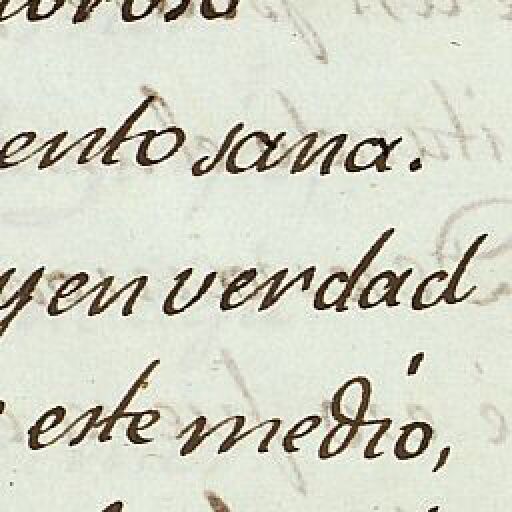 ento sana.
y en verdad
este medio,